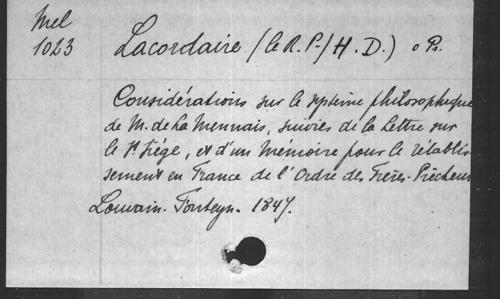 Mel
1023
Lacordaire (le R. P. / H. D.) o Pr.
Considérations sur le système philosophique
de M. de La Mennais, suivies de la Lettre sur
le St Siége, et d'un Mémoire pour le rétablis-
sement en France de l'Ordre des Frères-Prêcheurs
Louvain. Fonteyn. 1847.